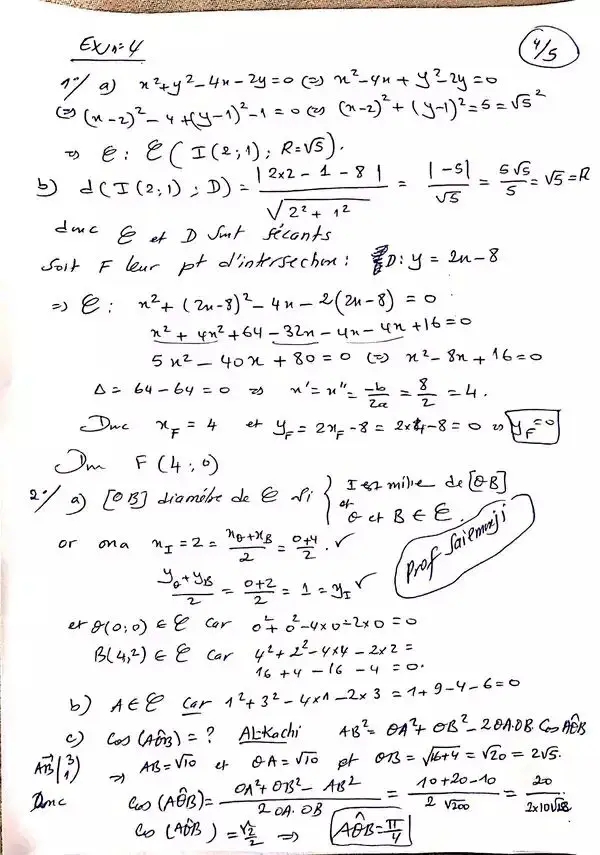 Ex n=4
4/5
1°/ a) x²+y²-4x-2y=0 (=) x²-4x+y²-2y=0
(=) (x-2)²-4+(y-1)²-1=0 (=) (x-2)²+(y-1)²=5=√5²
=> C: C(I(2;1); R=√5).
b) d(I(2;1);D) = |2x2-1-8| / √(2²+1²) = |-5|/√5 = 5√5/5 = √5=R
donc C et D sont sécants
soit F leur pt d'intersection: D: y=2x-8
=> C: x²+(2x-8)²-4x-2(2x-8)=0
x²+4x²+64-32x-4x-4x+16=0
5x²-40x+80=0 (=) x²-8x+16=0
Δ=64-64=0 => x'=x''=-b/2a=8/2=4.
Donc x_F=4 et y_F=2x_F-8=2x4-8=0 => y_F=0
Donc F(4;0)
2°/ a) [OB] diamètre de C si { I est milieu de [OB]
et
O et B ∈ C.
or on a x_I=2=(x_O+x_B)/2=(0+4)/2. ✓
Prof Saiemorji
(y_O+y_B)/2=(0+2)/2=1=y_I ✓
et O(0;0) ∈ C car 0²+0²-4x0-2x0=0
B(4,2) ∈ C car 4²+2²-4x4-2x2=
16+4-16-4=0.
b) A ∈ C car 1²+3²-4x1-2x3=1+9-4-6=0
c) cos(AÔB)=? AL-Kachi AB²=OA²+OB²-2OA.OB Cos AÔB
AB(3 1) => AB=√10 et OA=√10 pt OB=√(16+4)=√20=2√5.
Donc Cos(AÔB)=(OA²+OB²-AB²)/(2 OA.OB)=(10+20-10)/(2√200)=20/
Cos(AÔB)=√2/2 => AÔB=π/4